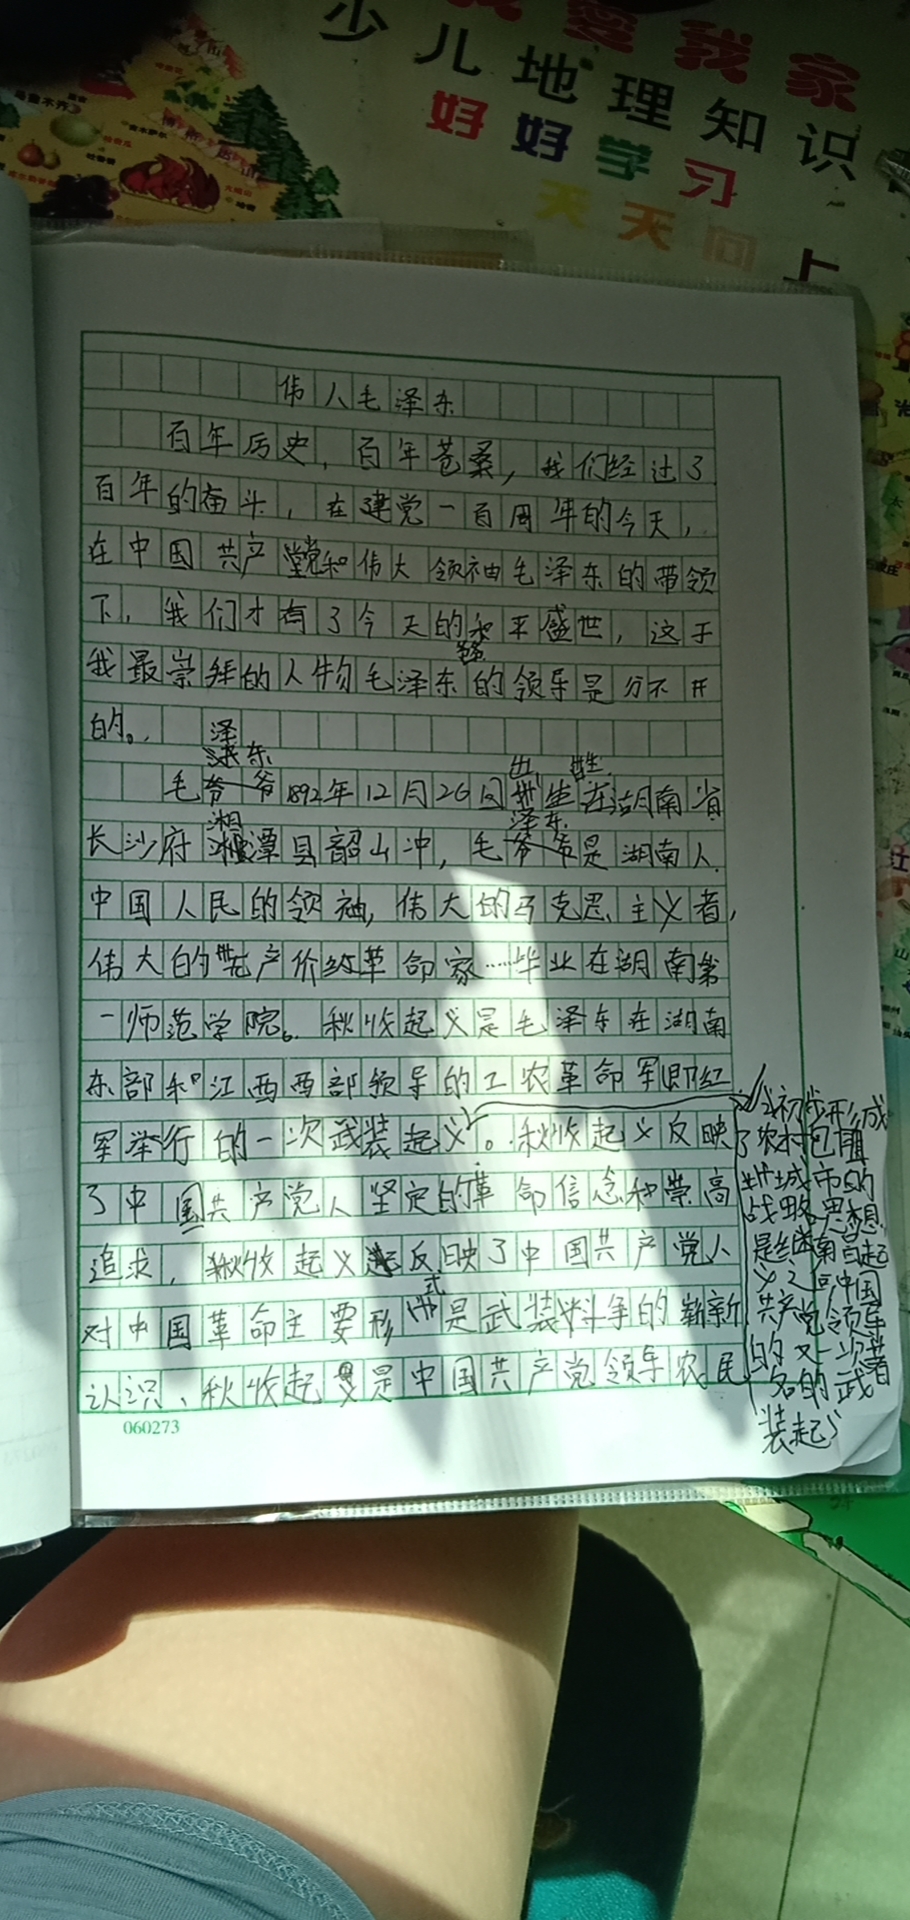 我爱我家
少儿地理知识
好好学习
天天向上
伟人毛泽东
百年历史，百年苍桑，我们经过了
百年的奋斗，在建党一百周年的今天，
在中国共产党和伟大领袖毛泽东的带领
下，我们才有了今天的和平盛世，这于
我最崇拜的人物毛泽东的领导是分不开
的。
泽东
出生
毛爷爷1892年12月26日世生在湖南省
湘
泽东
长沙府潭县韶山冲，毛爷爷是湖南人
中国人民的领袖，伟大的马克思主义者，
伟大的无产价级革命家……毕业在湖南第
一师范学院。秋收起义是毛泽东在湖南
东部和江西西部领导的工农革命军即红
军举行的一次武装起义。秋收起义反映
了中国共产党人坚定的革命信念和崇高
追求，秋收起义反映了中国共产党人
式
对中国革命主要形是武装斗争的崭新
认识、秋收起义是中国共产党领导农民
初步形成
了农村包围
城市的
战略思想
是继南昌起
义之后中国
共产党领导
的又一次著
名的武
装起义
060273